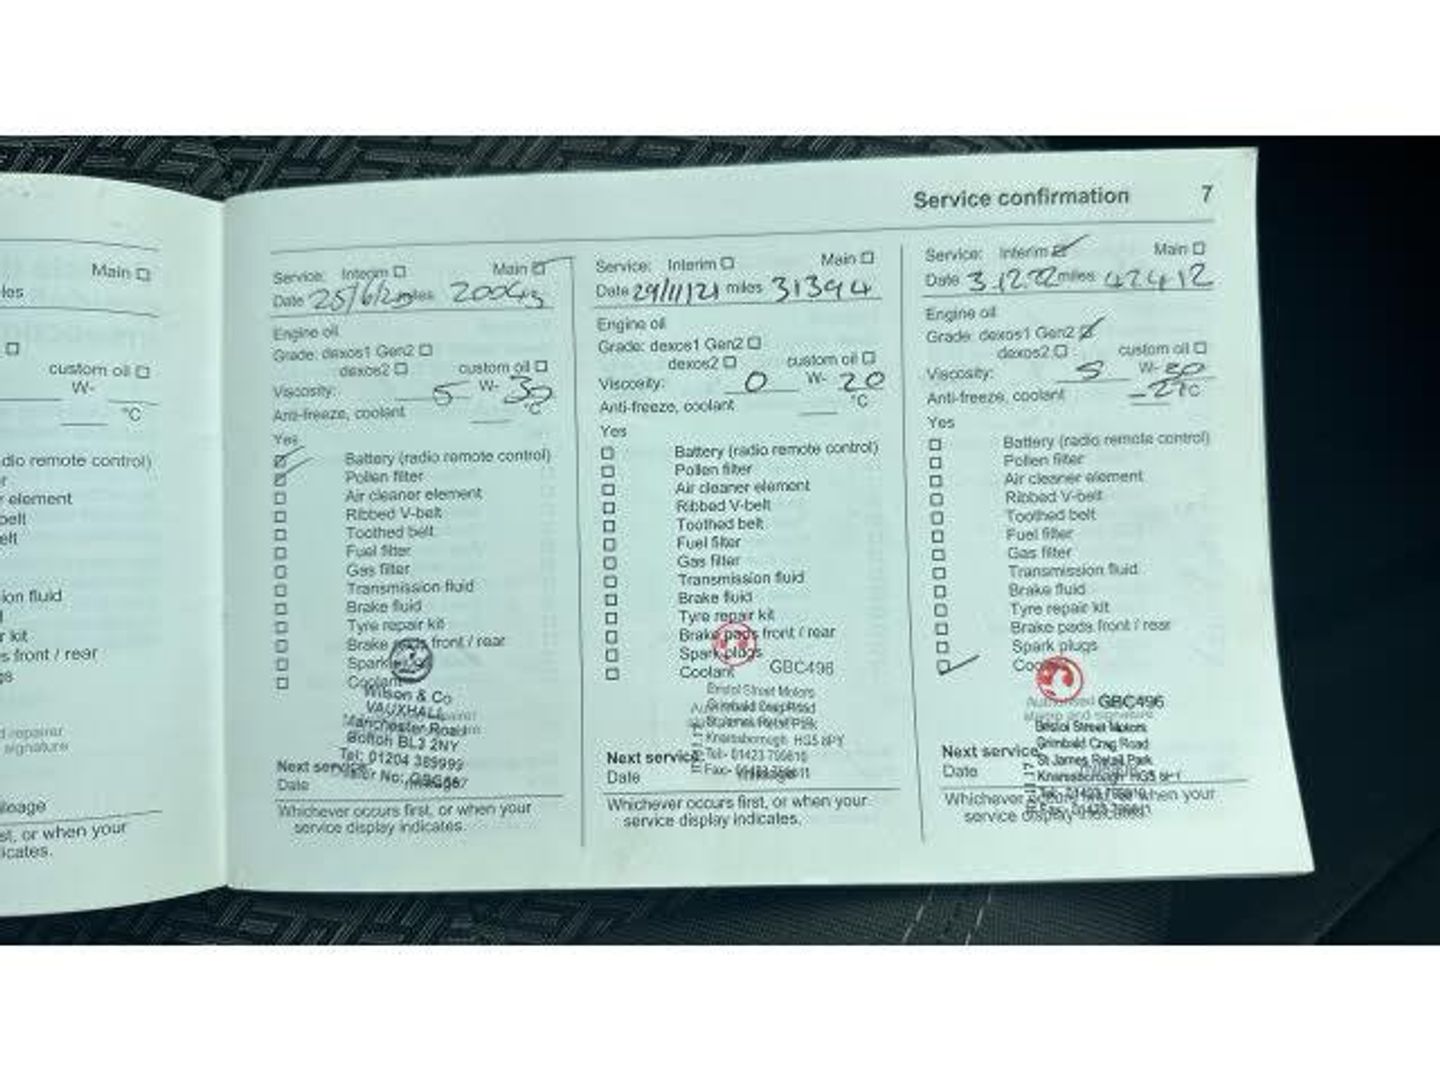 Service confirmation 7
Main
les
custom oil
W-
°C
dio remote control)
r
r element
belt
elt
ion fluid
r kit
s front / rear
gs
d repairer
signature
ileage
st, or when your
icates.
Service: Interim Main
Date 25/6/20 miles 20043
Engine oil
Grade: dexos1 Gen2
dexos2 custom oil
Viscosity: 5 W- 30
Anti-freeze, coolant °C
Yes
Battery (radio remote control)
Pollen filter
Air cleaner element
Ribbed V-belt
Toothed belt
Fuel filter
Gas filter
Transmission fluid
Brake fluid
Tyre repair kit
Brake pads front / rear
Spark
Coolant
Wilson & Co
VAUXHALL
Manchester Road
Bolton BL3 2NY
Tel: 01204 389999
Next service
Date
Whichever occurs first, or when your
service display indicates.
Service: Interim Main
Date 29/11/21 miles 31394
Engine oil
Grade: dexos1 Gen2
dexos2 custom oil
Viscosity: 0 W- 20
Anti-freeze, coolant °C
Yes
Battery (radio remote control)
Pollen filter
Air cleaner element
Ribbed V-belt
Toothed belt
Fuel filter
Gas filter
Transmission fluid
Brake fluid
Tyre repair kit
Brake pads front / rear
Spark plugs
Coolant GBC496
Bristol Street Motors
Grimbald Crag Road
St James Retail Park
Knaresborough HG5 8PY
Next service
Date
Whichever occurs first, or when your
service display indicates.
Service: Interim Main
Date 3.12.22 miles 42412
Engine oil
Grade: dexos1 Gen2
dexos2 custom oil
Viscosity: 5 W- 30
Anti-freeze, coolant °C
Yes
Battery (radio remote control)
Pollen filter
Air cleaner element
Ribbed V-belt
Toothed belt
Fuel filter
Gas filter
Transmission fluid
Brake fluid
Tyre repair kit
Brake pads front / rear
Spark plugs
GBC496
Bristol Street Motors
Grimbald Crag Road
St James Retail Park
Knaresborough
Next service
Date
Whichever occurs when your
service display